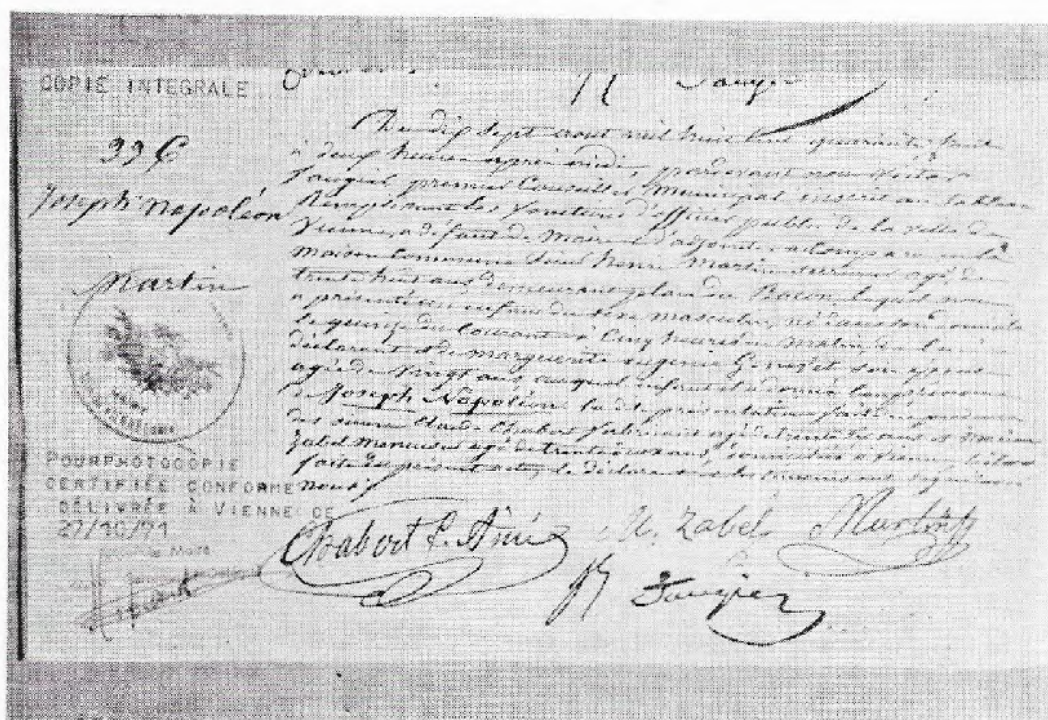 COPIE INTEGRALE
396
Joseph Napoléon
Martin
POUR PHOTOCOPIE
CERTIFIÉE CONFORME
DÉLIVRÉE À VIENNE LE
27/10/71
Maire
Du dix sept aout mil huit cent quarante huit
à deux heures après midi, pardevant nous Victor
Faugier, premier Conseiller Municipal inscrit au tableau
Remplissant les fonctions d'officier public de la ville de
Vienne, à défaut de Maire et d'adjoint, a comparu en la
maison Commune sieur Henri Martin agé de
trente huit ans demeurant place du Bacon, lequel nous
a présenté un enfant du sexe masculin, né dans son domicile
le quinze du Courant à Cinq heures du Matin, de lui
déclarant et de marguerite eugenie son epouse
agée de vingt ans, auquel enfant il a donné les prénoms
de Joseph Napoléon la dite présentation faite en présence
des sieurs Chabert fabricant agé de trente ans et
Zabel Menuisier agé de trente ans, domiciliés à Vienne, lecture
faite du présent acte, le déclarant et les témoins ont signé avec
nous
Chabert f. Aîné
M. Zabel
Martin
Faugier